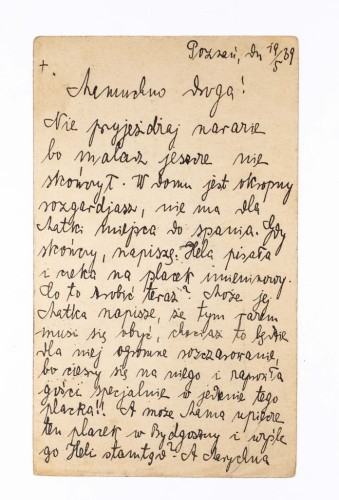 Poznań, dn 19/5 39
+
Mamuchno droga!
Nie przyjeżdżaj narazie
bo malarz jeszcze nie
skończył. W domu jest okropny
rozgardjasz, nie ma dla
Matki miejsca do spania. Gdy
skończy, napiszę. Hela pisała
i czeka na placek imieninowy.
Co to zrobić teraz? Może jej
Matka napisze, że tym razem
musi się obyć, chociaż to będzie
dla niej ogromne rozczarowanie,
bo cieszy się na niego i naprosiła
gości specjalnie w jedzenie tego
placka!! A może Mama upiecze
ten placek w Bydgoszczy i wyśle
go Heli stamtąd? A